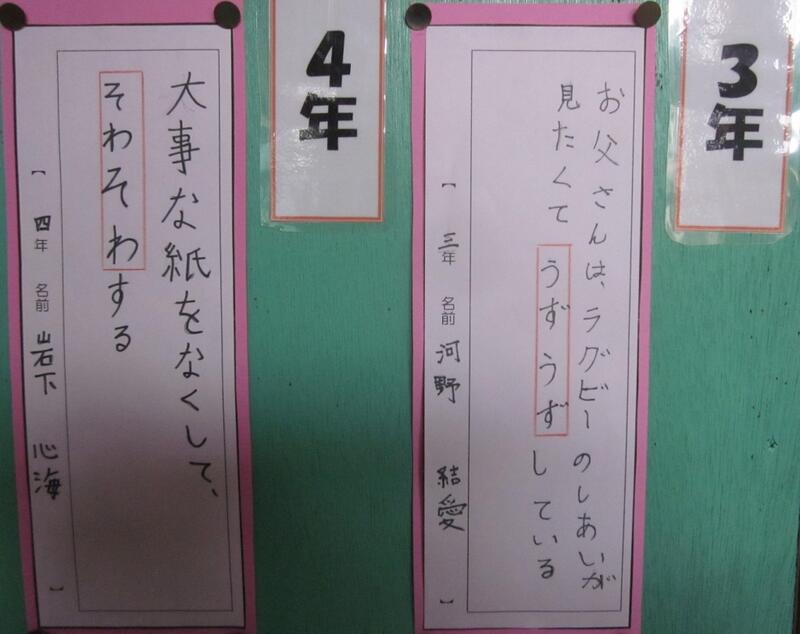 3年
お父さんは、ラグビーのしあいが
見たくてうずうずしている
【 三年 名前 河野 結愛 】
4年
大事な紙をなくして、
そわそわする
【 四年 名前 岩下 心海 】